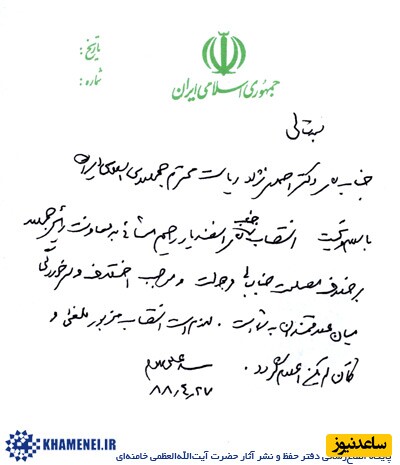 جمهوری اسلامی ایران
تاریخ :
شماره :
بسمه تعالی
جناب آقای دکتر احمدی نژاد ریاست محترم جمهوری اسلامی ایران
با سلام و تحیت انتصاب جناب آقای اسفندیار رحیم مشائی به معاونت رئیس جمهور
بر خلاف مصلحت جنابعالی و دولت و موجب اختلاف و سرخوردگی
میان علاقمندان به شما است . لازم است انتصاب مزبور ملغی و
کان لم یکن اعلام گردد .
سید علی خامنه
۸۸,۴,۲۷
KHAMENEI.IR
پایگاه اطلاع‌رسانی دفتر حفظ و نشر آثار حضرت آیت‌الله‌العظمی خامنه‌ای
ساعدنیوز